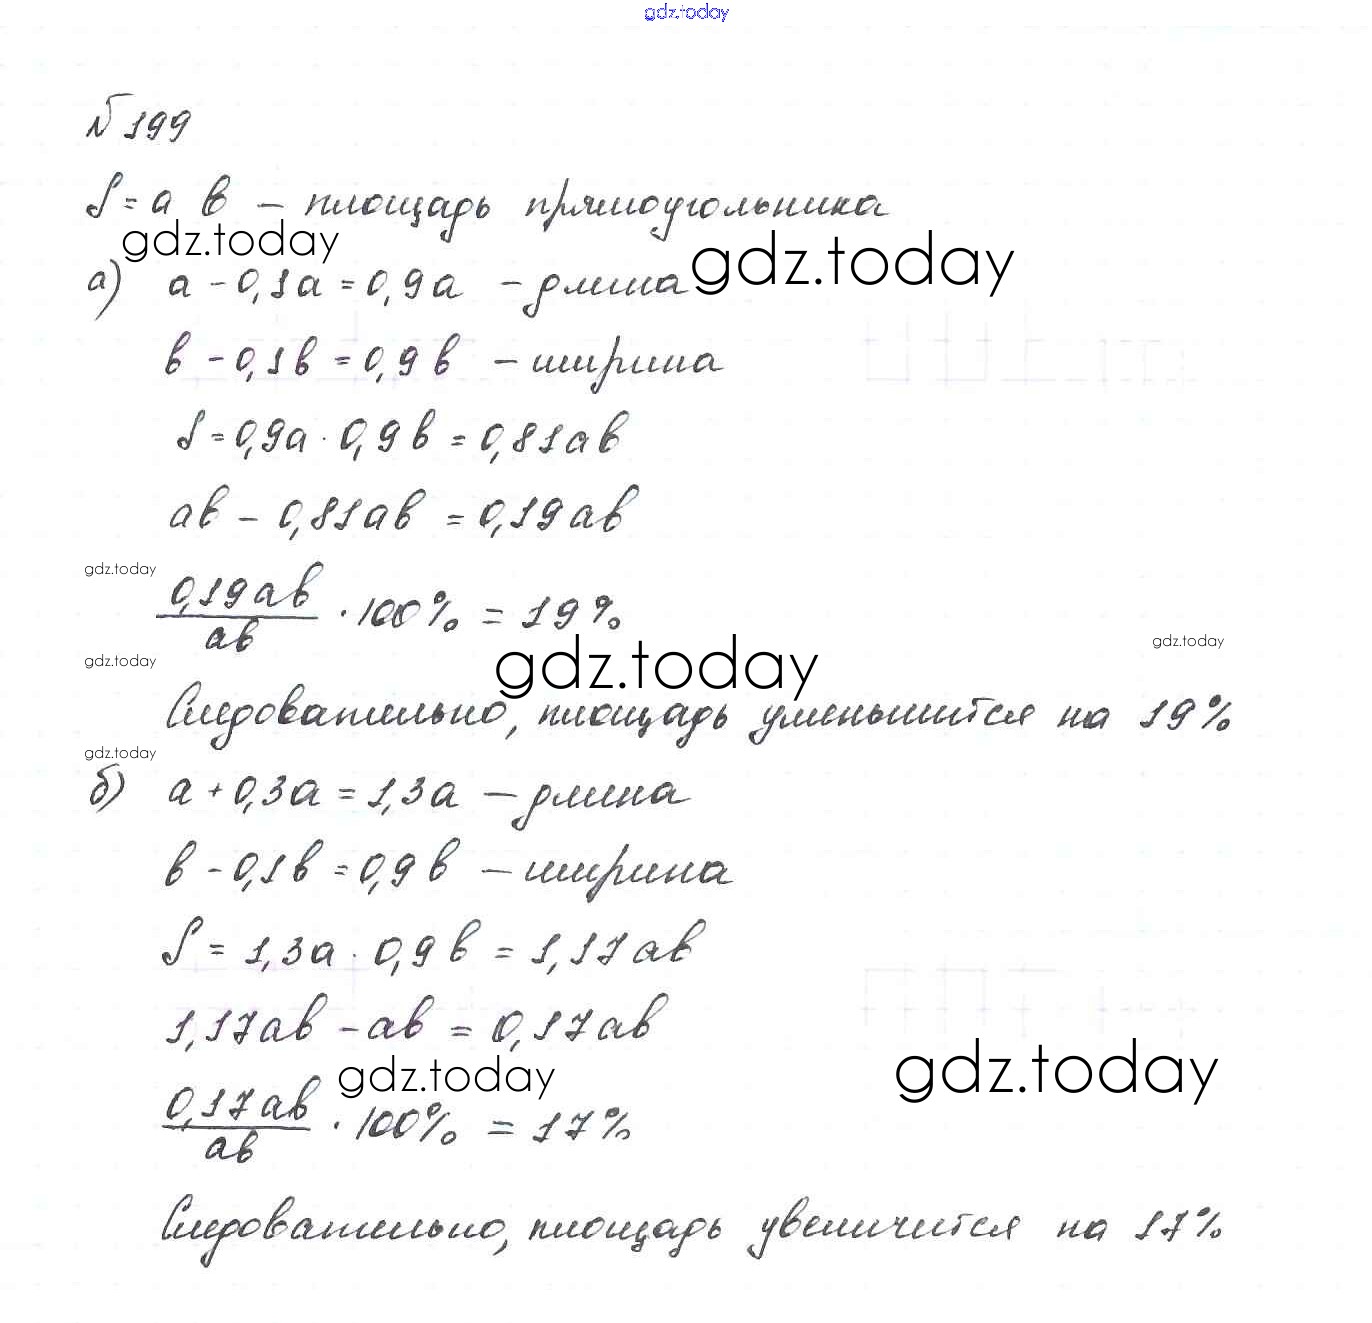 gdz.today
№ 199
S = a b – площадь прямоугольника
gdz.today
gdz.today
а) a - 0,1a = 0,9a – длина
b - 0,1b = 0,9b – ширина
S = 0,9a · 0,9b = 0,81ab
ab - 0,81ab = 0,19ab
gdz.today
0,19ab
ab
· 100% = 19%
gdz.today
gdz.today
gdz.today
Следовательно, площадь уменьшится на 19%
gdz.today
б) a + 0,3a = 1,3a – длина
b - 0,1b = 0,9b – ширина
S = 1,3a · 0,9b = 1,17ab
1,17ab - ab = 0,17ab
gdz.today
gdz.today
0,17ab
ab
· 100% = 17%
Следовательно, площадь увеличится на 17%